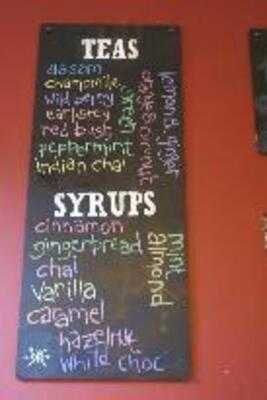 TEAS
assam
chamomile
wild berry
earl grey
red bush
peppermint
indian chai
green
lemon & ginger
SYRUPS
cinnamon
gingerbread
chai
vanilla
caramel
hazelnut
white choc
mint
almond